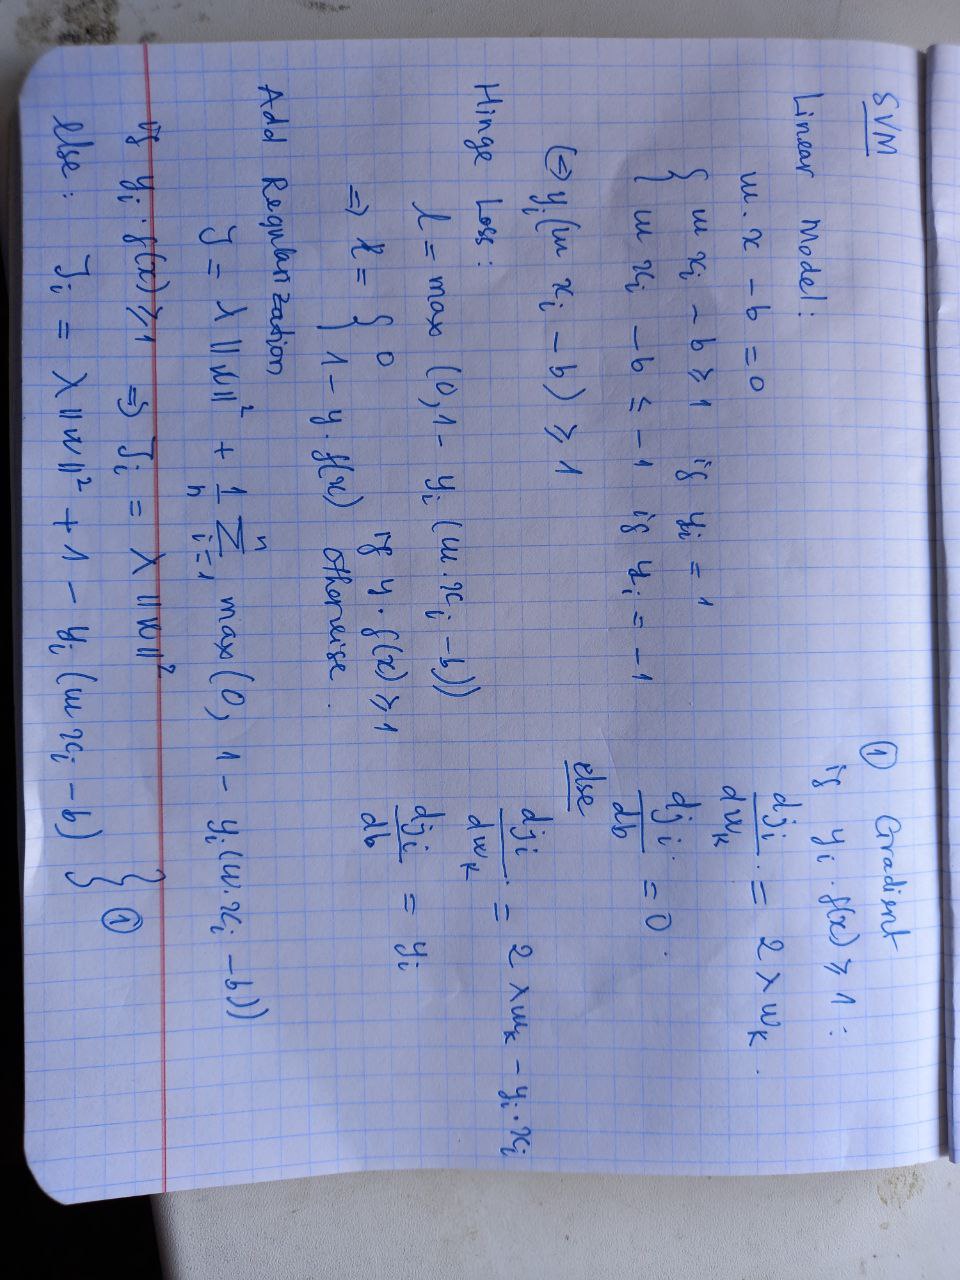 SVM
Linear Model:
w.x - b = 0
{ w xi - b ≥ 1 if yi = 1
w xi - b ≤ -1 if yi = -1
(⇔) yi(w xi - b) ≥ 1
Hinge Loss:
l = max (0, 1 - yi (w.xi - b))
⇒ l = { 0 if y.f(x) ≥ 1
1 - y.f(x) otherwise.
Add Regularization
J = λ ||w||² + 1/n Σ_{i=1}^{n} max(0, 1 - yi(w.xi - b))
if yi.f(x) ≥ 1 ⇒ Ji = λ ||w||²
else: Ji = λ ||w||² + 1 - yi (w xi - b) } ①
① Gradient
if yi.f(x) ≥ 1 :
dji/dwk = 2 λ wk.
dji/db = 0
else
dji/dwk = 2 λ wk - yi.xi
dji/db = yi